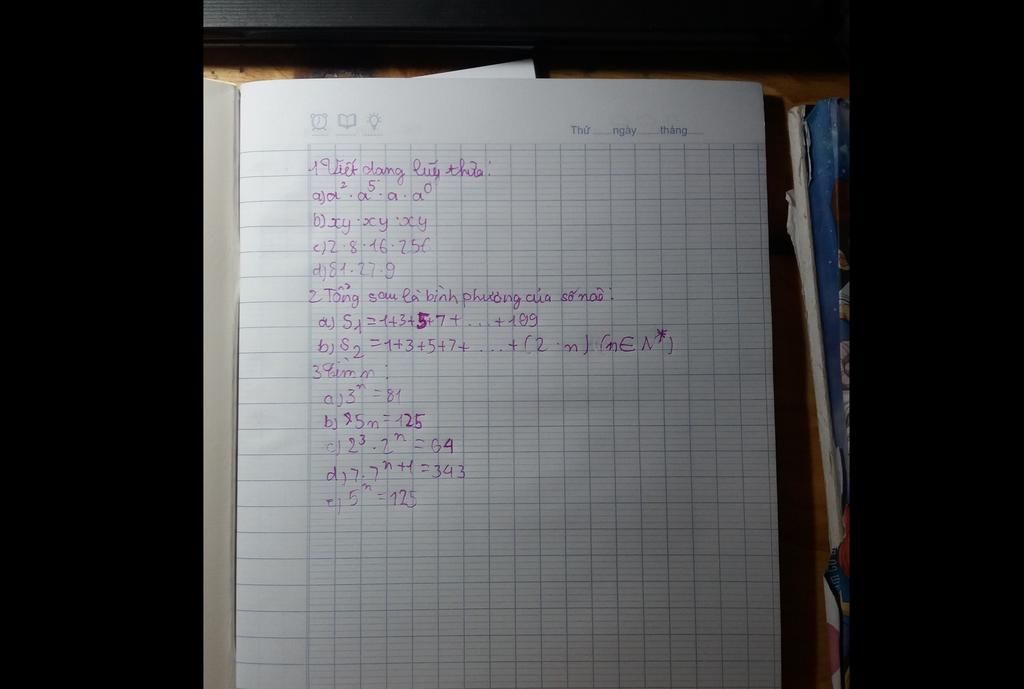 Thứ ngày tháng
1 Viết dạng lũy thừa:
a) a² · a⁵ · a · a⁰
b) xy · xy · xy
c) 2 · 8 · 16 · 256
d) 81 · 27 · 9
2 Tổng sau là bình phương của số nào:
a) S₁ = 1+3+5+7+ ... +109
b) S₂ = 1+3+5+7+ ... +(2 · n) (n∈N*)
3 Tìm n:
a) 3ⁿ = 81
b) 5n = 125
c) 2³ · 2ⁿ = 64
d) 7 · 7ⁿ⁺¹ = 343
e) 5ⁿ = 125